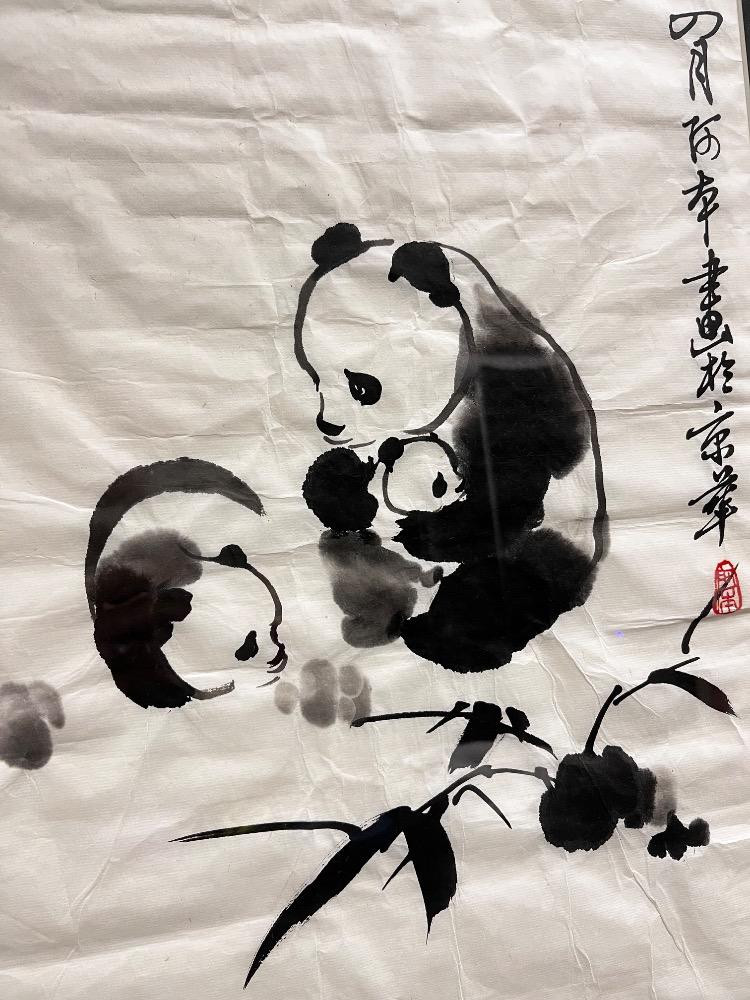 四月阿本畫於京華
阿本